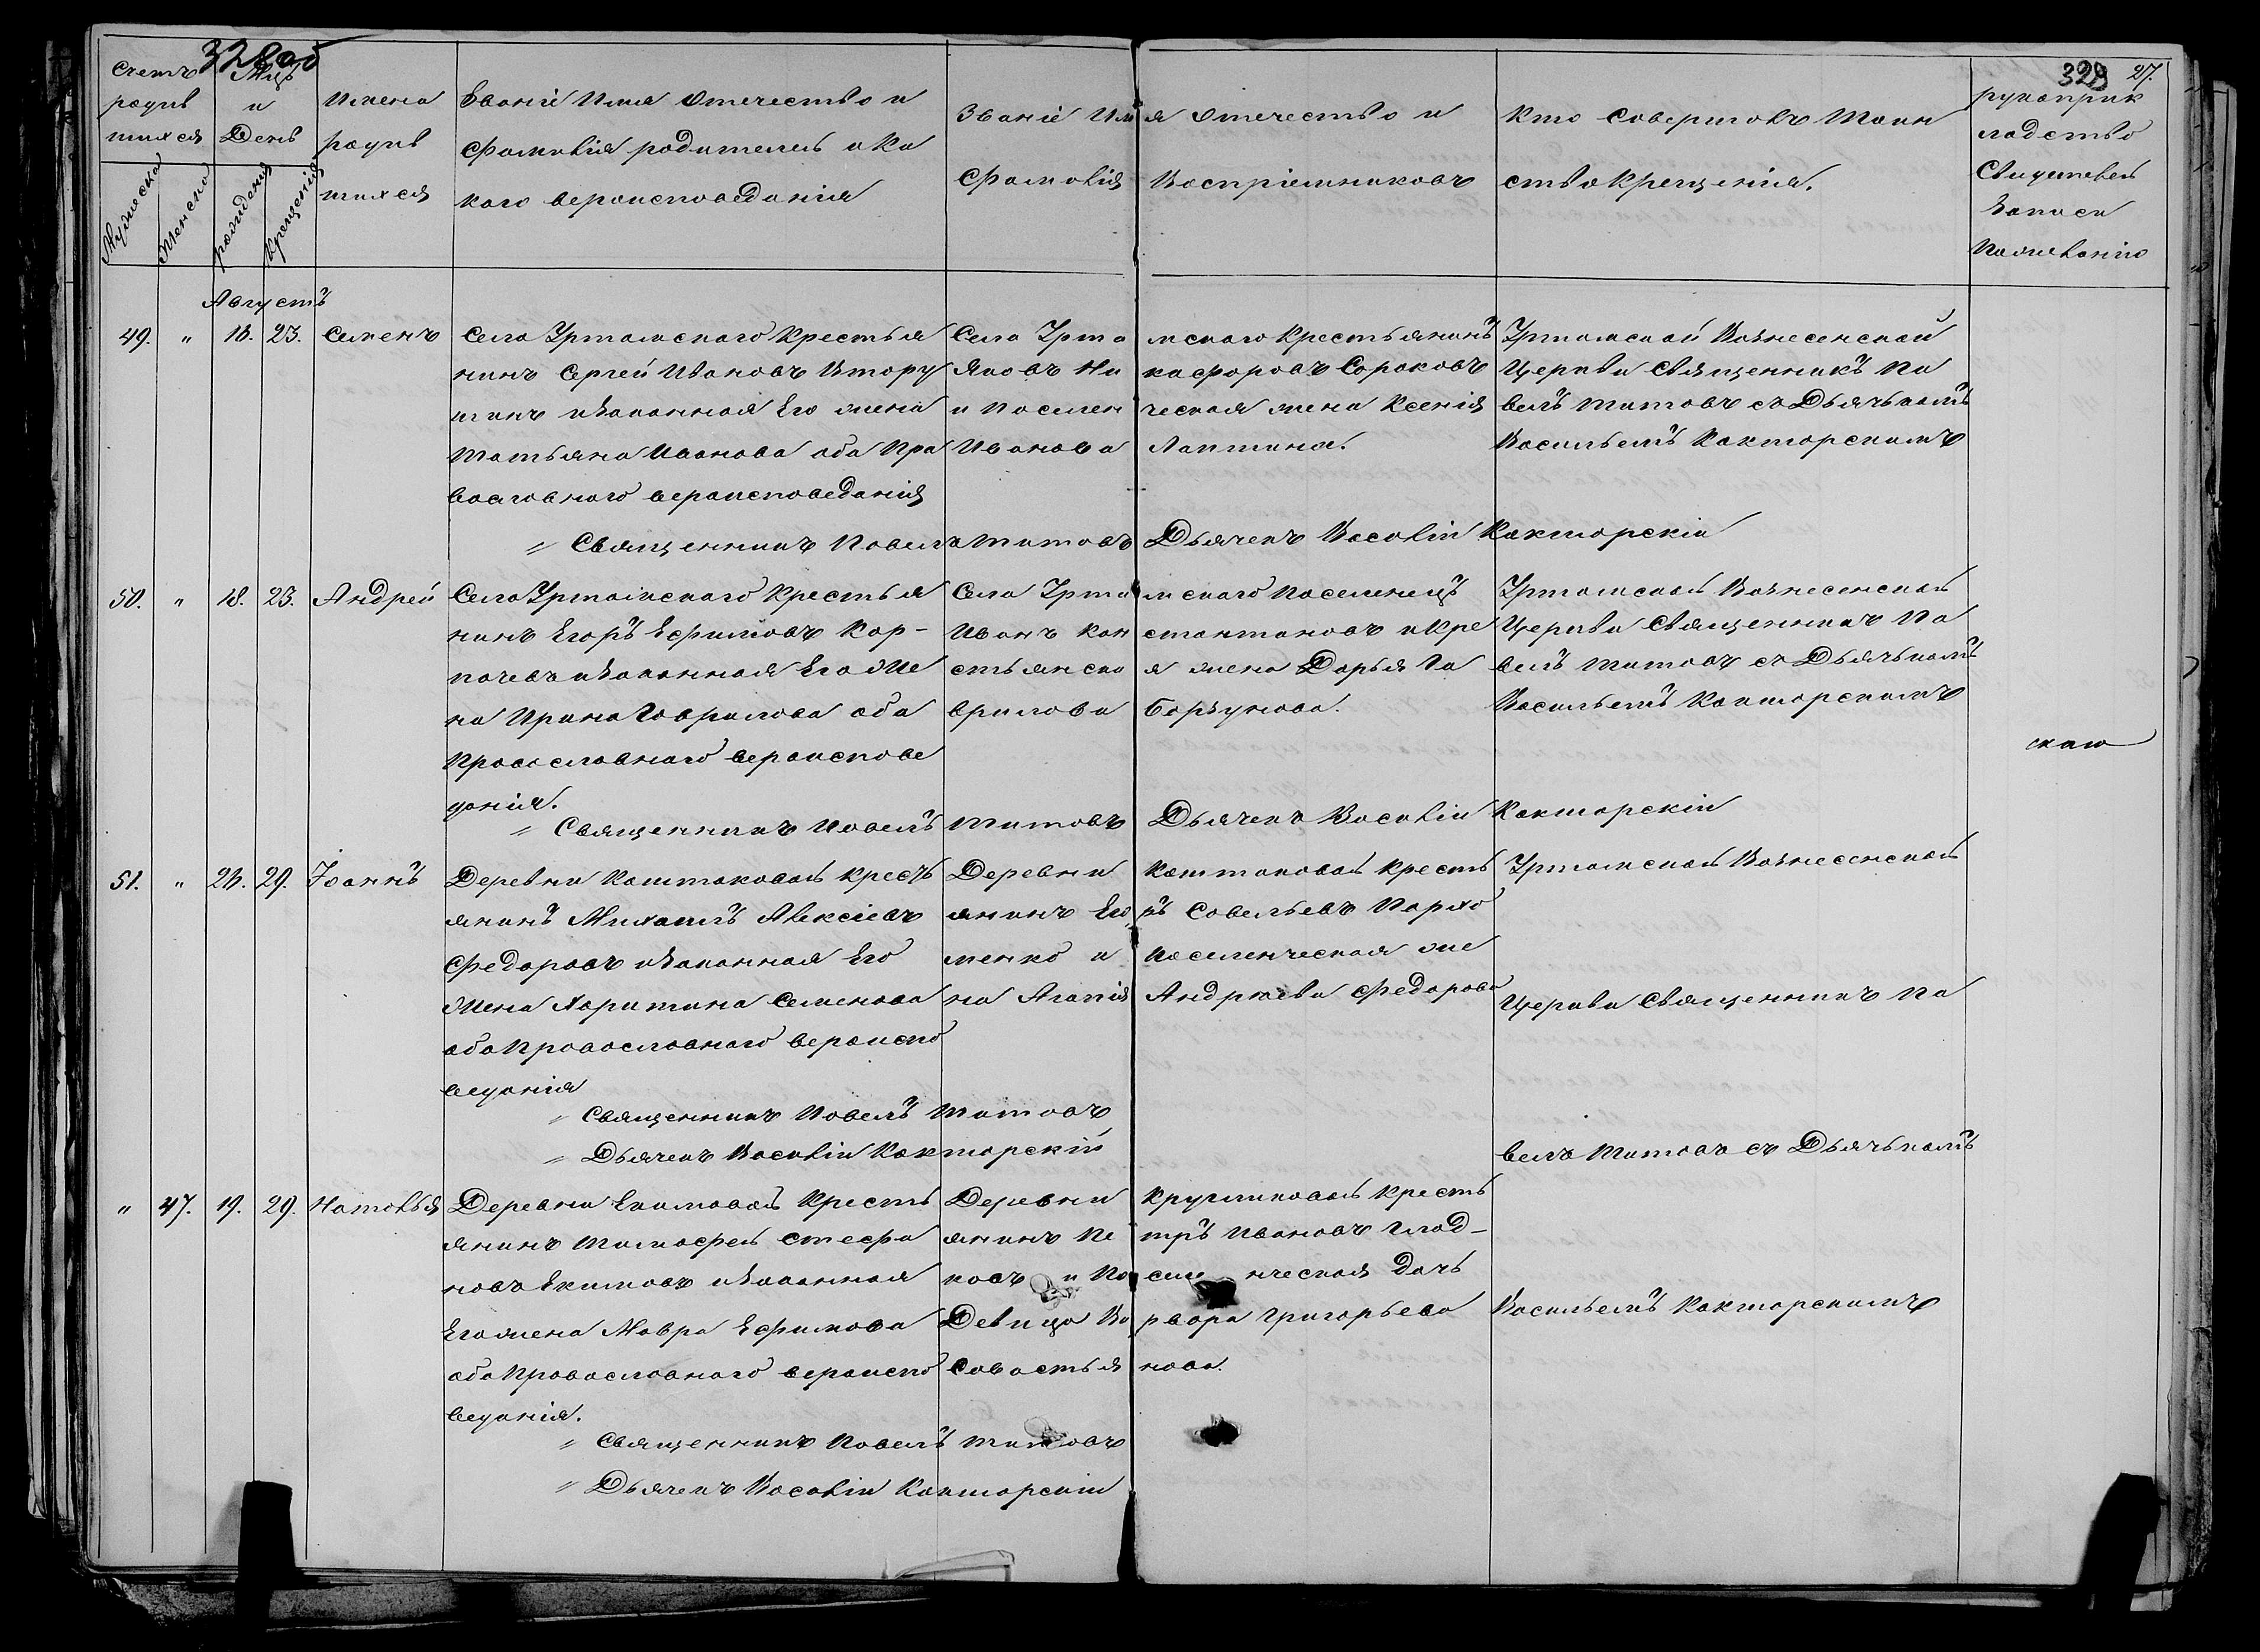 328об
329 27.
Счетъ родив шихся
Мужеска
Женска
Мцъ и День
рождения
крещения
Имена родив шихся
Званіе Имя Отечество и
Фамилія родителей и Ка
кого вероисповеданія
Званіе Имя Отечество и
Фамилія Воспріемниковъ
Кто Совершалъ Таин
ство Крещенія.
рукоприк
ладство
Свидетелей
Записи
Пожеланію
Августъ
49. " 18. 23. Семенъ
Села Уртамского Крестья
нинъ Сергей Ивановъ Втору
шинъ изаконная Его жена
Татьяна Иванова оба Пра
вославного вероисповеданія
Села Уртамского Крестьянинъ
Яковъ Никифоровъ Сороковъ
и Поселенческая жена Ксенія
Иванова Лаптина.
Уртамской Вознесенской
Церкви Священникъ Па
велъ Титовъ съ Дьячькомъ
Васильемъ Какторскимъ
" Священникъ Павелъ Титовъ Дьячекъ Василій Какторскій
50. " 18. 23. Андрей
Села Уртамского Крестья
нинъ Егоръ Ефимовъ Кор-
ночевъ изаконная Его Же
на Ирина Гаврилова оба
Православного вероисповe
данія.
Села Уртамского Поселенецъ
Иванъ Константиновъ иКре
стьянская жена Дарья Га
врилова Барзунова.
Уртамской Вознесенской
Церкви Священникъ Па
велъ Титовъ съ Дьячькомъ
Васильемъ Какторскимъ
" Священникъ Павелъ Титовъ Дьячекъ Василій Какторскій
51. " 26. 29. Іоаннъ
Деревни Каштаковой кресть
янинъ Михаилъ Алексіевъ
Федоровъ изаконная Его
Жена Харитина Семенова
оба Православного вероиспо
веданія
Деревни Каштаковой Кресть
янинъ Егоръ Савельевъ Пархо
менко и Поселенческая же
на Агапія Андреева Федорова
Уртамской Вознесенской
Церкви Священникъ Па
велъ Титовъ съ Дьячькомъ
Васильемъ Какторскимъ
" Священникъ Павелъ Титовъ
" Дьячекъ Василій Какторскій
" 47. 19. 29. Наталья
Деревни Екимовой Кресть
янинъ Тимофей Стефа
новъ Екимовъ изаконная
Его жена Мавра Ефимова
оба Православного вероиспо
веданія.
Деревни Кругликовой Кресть
янинъ Петръ Ивановъ Глад-
ковъ и Поселенческая Дочь
Девица Варвара Григорьева
Савастьянова.
" Священникъ Павелъ Титовъ
" Дьячекъ Василій Какторскій